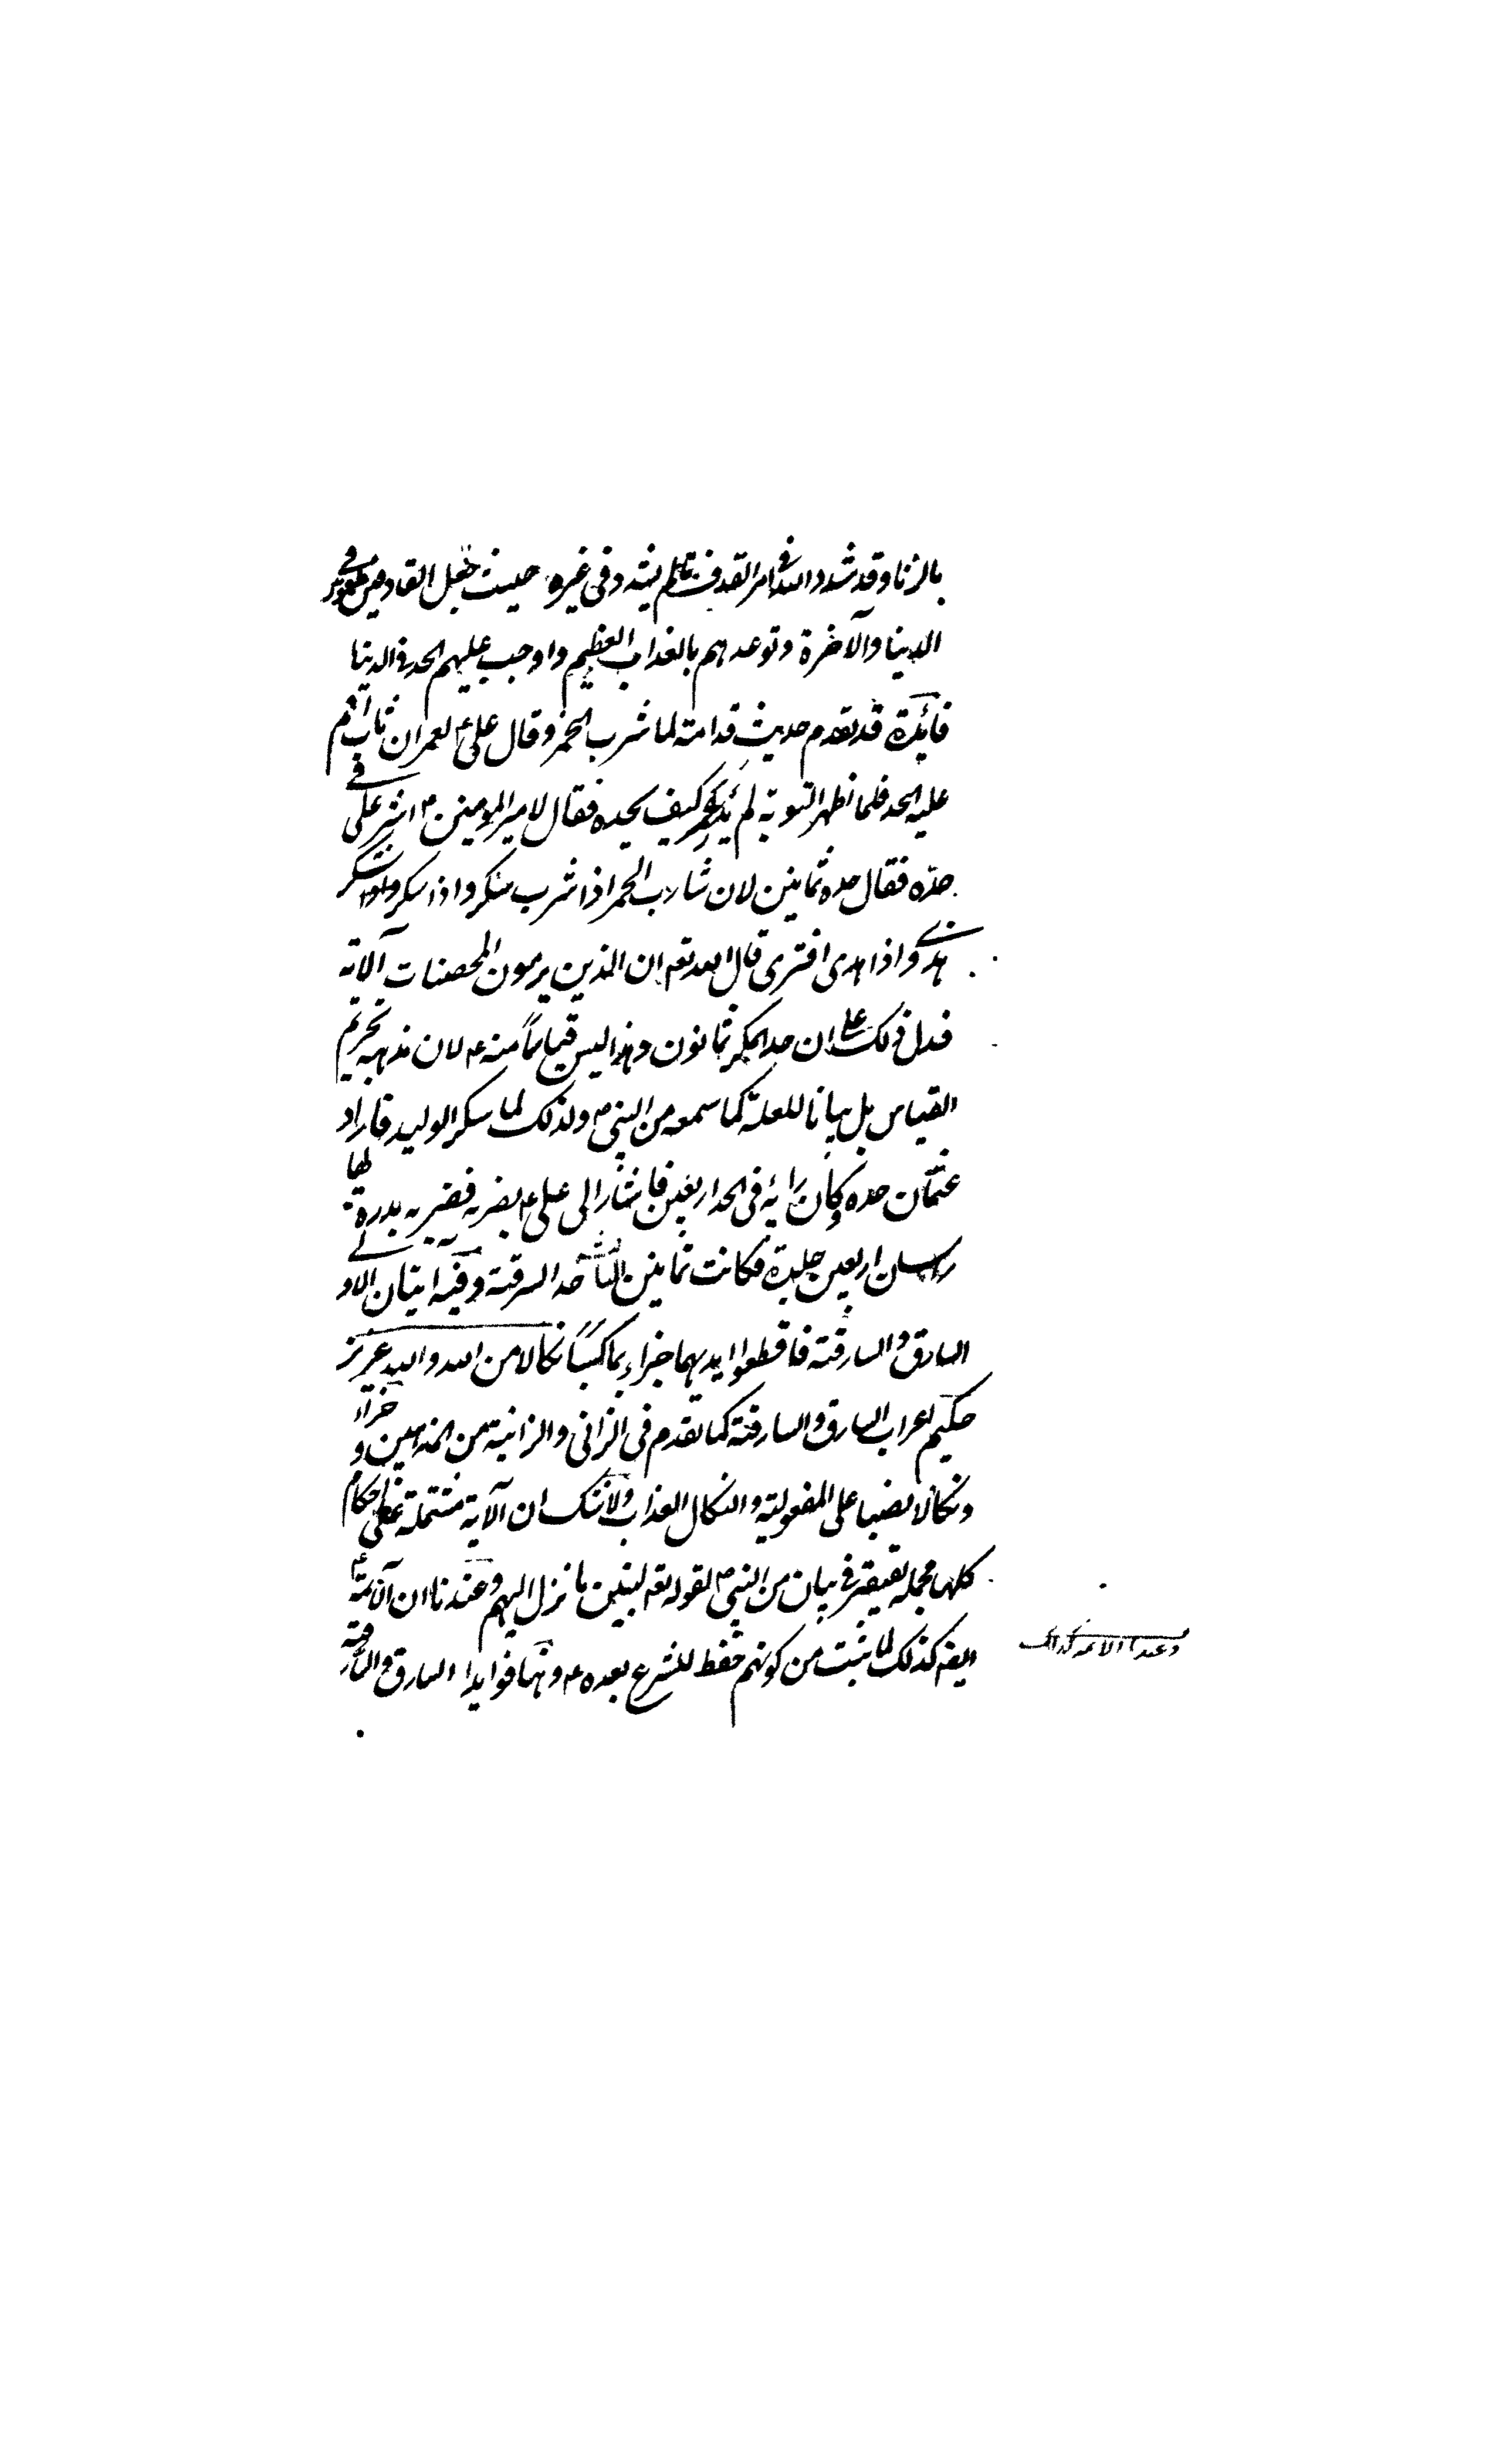 بالزنا وقد شدد الله في امر القذف ما لم يشدد في غيره حيث جعل القاذفين ملعونين في
الدنيا والآخرة وتوعدهم بالعذاب العظيم واوجب عليهم الحد في الدنيا
فائدة قد تقدم حديث قدامة لما شرب الخمر وقال علي ع لعمر ان تاب اقم
عليه الحد فلما اظهر التوبة لم يدر عمر كيف يحده فقال لامير المؤمنين ع اشر علي في
حدّه فقال حده ثمانين لان شارب الخمر اذا شرب سكر واذا سكر
هذى واذا هذى افترى قال الله تعه ان الذين يرمون المحصنات الآية
فدل ذلك على ان حد السكر ثمانون وهذا ليس قياساً منه ع لان مذهبه تحريم
القياس بل بيانا للعلة كما سمعه من النبي ص ولذلك لما سكر الوليد فاراد
عثمان حده وكان رايه في الحد اربعين فاشار الى علي ع بضربه فضربه بدرة لها
راسان اربعين جلدة فكانت ثمانين الثالث حد السرقة وفيه ايتان الاولى
السارق والسارقة فاقطعوا ايديهما جزاء بما كسبا نكالا من الله والله عزيز
حكيم اعراب السارق والسارقة كما تقدم في الزاني والزانية من المذهبين و جزاء
ونكالا نصبا على المفعولية والنكال العذاب ولا شك ان الآية مشتملة على احكام
كلها مجملة تفتقر في بيان من النبي ص لقوله تعه لتبين ما نزل اليهم وعندنا ان الائمة ع
ايضه كذلك لما ثبت من كونهم حفظة للشرع بعده ع وهنا فوايد ا السارق والسارقة
وعندنا الائمة كذلك